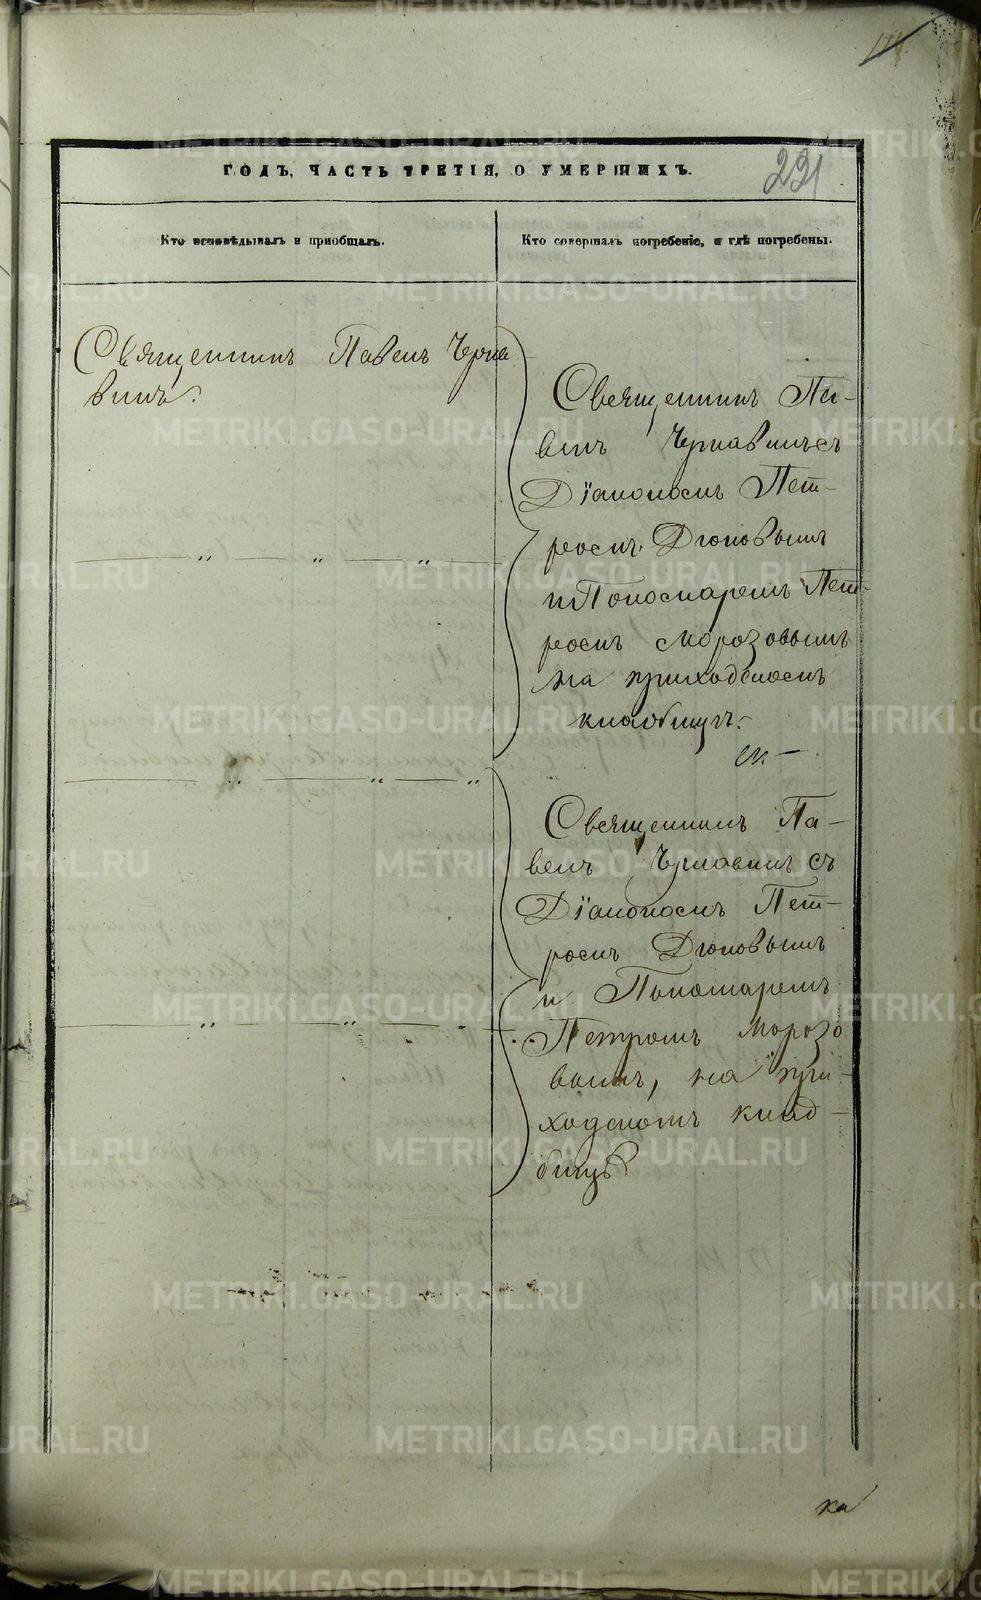 ГОДЪ, ЧАСТЬ ТРЕТІЯ, О УМЕРШИХЪ.
221
Кто исповѣдывалъ и пріобщалъ.
Кто совершалъ погребеніе, и гдѣ погребены.
Священникъ Павелъ Черна
винъ.
— „ — „ — „ —
— „ — „ — „
— „ — „ —
Священникъ Па-
велъ Чернавинъ съ
Діакономъ Пет-
ромъ Дюковымъ
и Пономаремъ Пет-
ромъ Морозовымъ
на приходскомъ
кладбищѣ.
Священникъ Па-
велъ Чернавинъ съ
Діакономъ Пет-
ромъ Дюковымъ
и Пономаремъ
Петромъ Морозо
вымъ, на при-
ходскомъ клад-
бищѣ
ка
METRIKI.GASO-URAL.RU